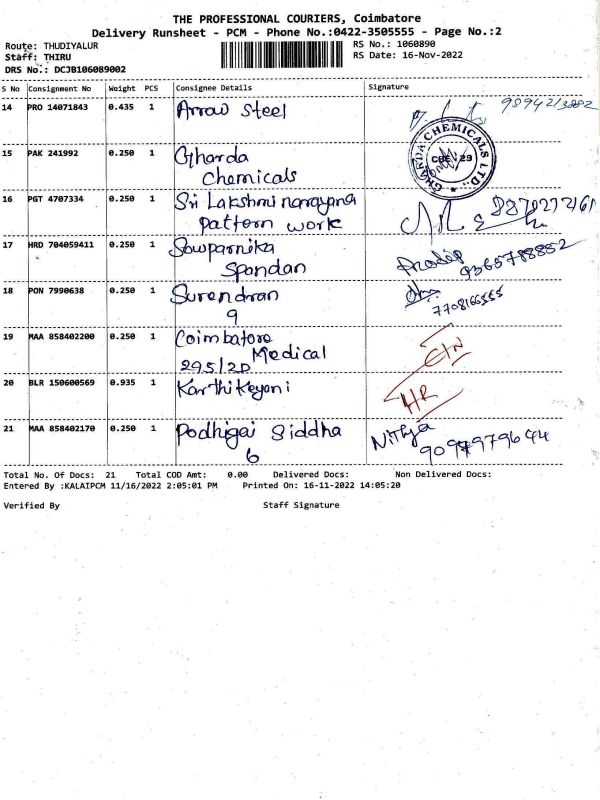 THE PROFESSIONAL COURIERS, Coimbatore
Delivery Runsheet - PCM - Phone No.:0422-3505555 - Page No.:2
Route: THUDIYALUR RS No.: 1060890
Staff: THIRU RS Date: 16-Nov-2022
DRS No.: DCJB106089002
S No Consignment No Weight PCS Consignee Details Signature
14 PRO 14071843 0.435 1 Arrow Steel
15 PAK 241992 0.250 1 Gharda
Chemicals
GHARDA CHEMICALS LTD.
16 PGT 4707334 0.250 1 Sri Lakshmi narayana
pattern work
17 HRD 704059411 0.250 1 Sowparnika Pradip
Spandan 9365788852
18 PON 7990638 0.250 1 Surendran
9 7708166555
19 MAA 858402200 0.250 1 Coimbatore
Medical
295/2D
20 BLR 150600569 0.935 1 Karthikeyani HR
21 MAA 858402170 0.250 1 Podhigai Siddha Nithya
6 9097979644
Total No. Of Docs: 21 Total COD Amt: 0.00 Delivered Docs: Non Delivered Docs:
Entered By :KALAIPCM 11/16/2022 2:05:01 PM Printed On: 16-11-2022 14:05:20
Verified By Staff Signature